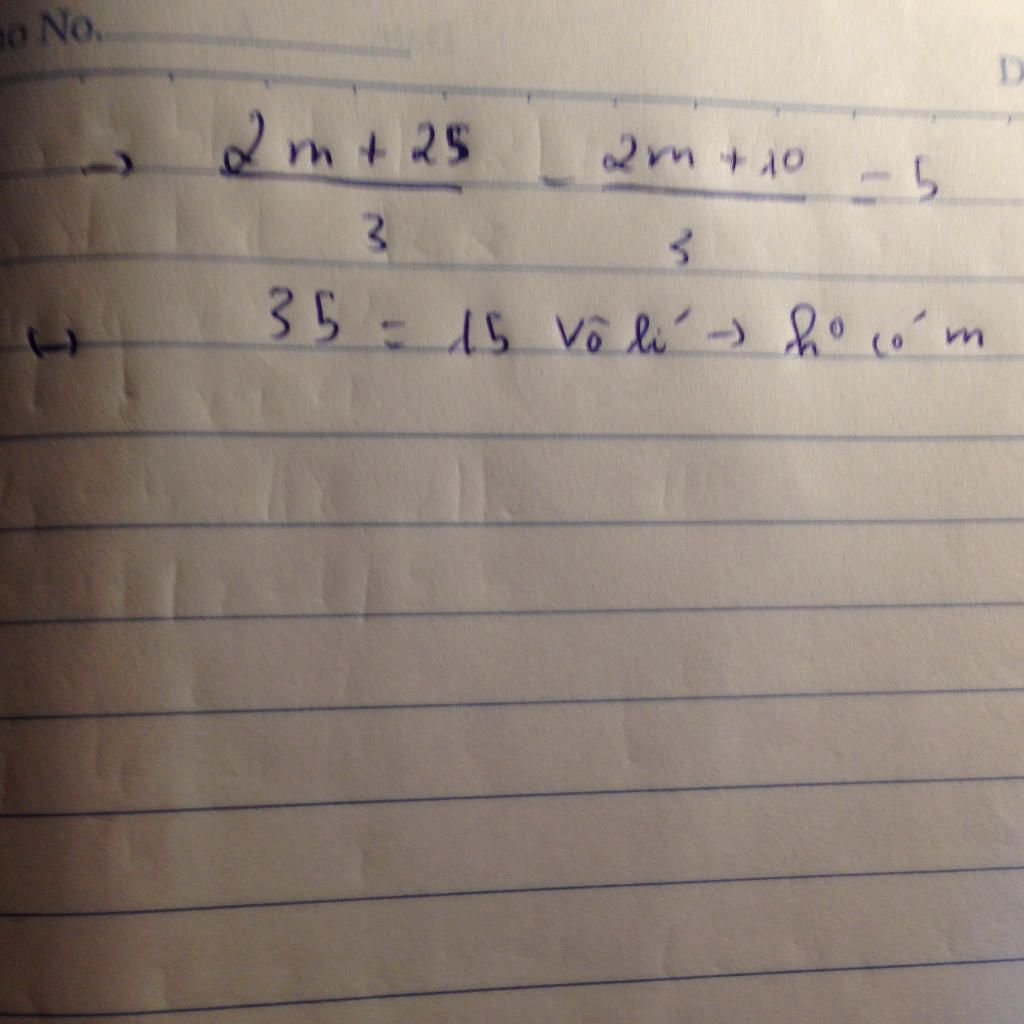 no No.
D
→ (2m + 25)/3 - (2m + 10)/3 = 5
↔ 35 = 15 vô lí → ko có m